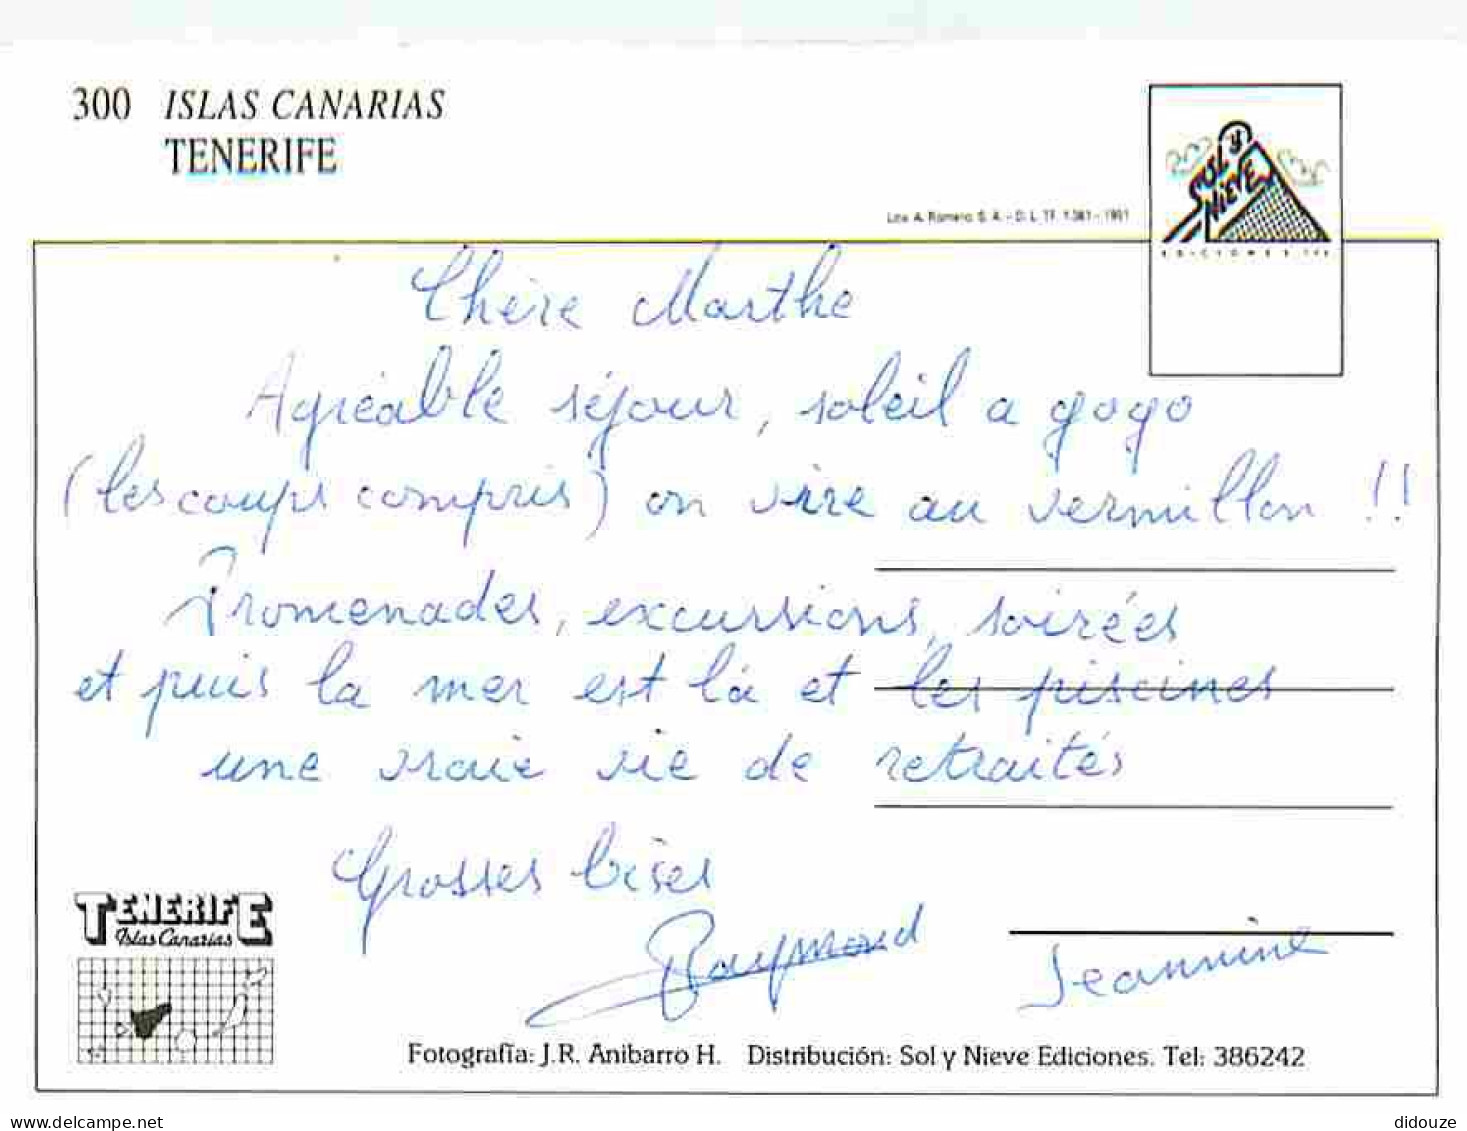 300 ISLAS CANARIAS
TENERIFE
SOL Y
NIEVE
EDICIONES
Lito A. Romero, S. A. - D. L. TF. 1.381 - 1991
Chère Marthe
Agréable séjour, soleil a gogo
(les coups compris) on vire au vermillon !!
Promenades, excursions, soirées
et puis la mer est là et les piscines
une vraie vie de retraités
Grosses bises
Raymond Jeannine
TENERIFE
Islas Canarias
Fotografía: J.R. Anibarro H. Distribución: Sol y Nieve Ediciones. Tel: 386242
delcampe.net
didouze